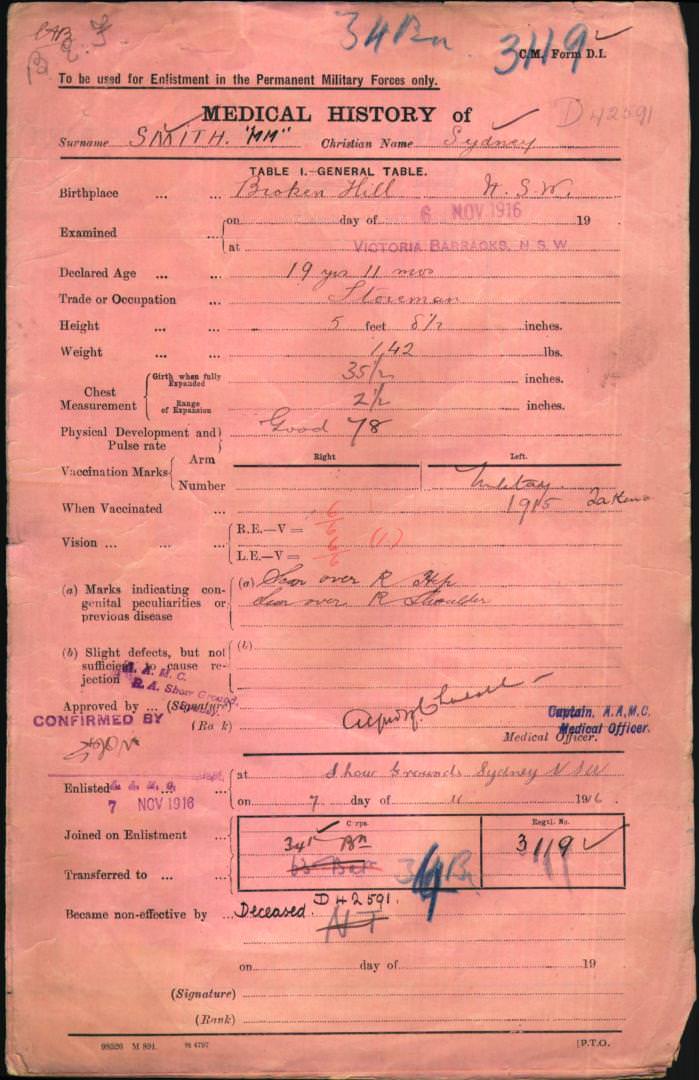 B. E. F. 34 Bn 3119 C.M. Form D.1.
To be used for Enlistment in the Permanent Military Forces only.
D 42591
MEDICAL HISTORY of
Surname SMITH. "MM" Christian Name Sydney
TABLE I.—GENERAL TABLE.
Birthplace ... ... Broken Hill N. S. W.
Examined ... on day of 6 NOV 1916 19
at VICTORIA BARRACKS, N.S.W
Declared Age ... ... 19 yrs 11 mos
Trade or Occupation ... Storeman
Height ... ... 5 feet 8 1/2 inches.
Weight ... ... 142 lbs.
Chest Measurement Girth when fully Expanded 35 1/2 inches.
Range of Expansion 2 1/2 inches.
Physical Development and Pulse rate Good 78
Vaccination Marks Arm Right Left.
Number
When Vaccinated ... 1915
Vision ... ... ... R.E.—V = 6/6 (1.)
L.E.—V = 6/6
(a) Marks indicating congenital peculiarities or previous disease (a) Scar over R Hip
Scar over R Shoulder
(b) Slight defects, but not sufficient to cause rejection (b)
A. A. M. C.
R. A. Show Ground,
Approved by ... (Signature)
CONFIRMED BY (Rank) Captain, A.A.M.C.
Medical Officer.
Medical Officer.
Enlisted ... at Show Grounds Sydney N S W
7 NOV 1916 on 7 day of 11 1916.
Corps. Regtl. No.
Joined on Enlistment ... 34th Bn 3119
Transferred to ... ... 34 Bn
Became non-effective by ... Deceased. D 42591.
NT
on day of 19
(Signature)
(Rank)
98320 M 891. [P.T.O.